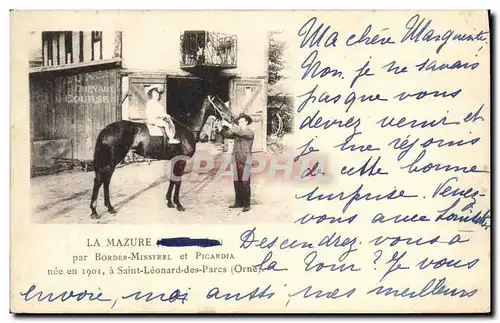 Ma chère Marquente,
Non, je ne savais
pas que vous
devrez venir et
je me réjouis
de cette bonne
surprise. Venez
vous avec Louise
Descendrez-vous à
la Tour? Je vous
envoie, moi aussi, mes meilleurs
CHEVAUX
COURSE
LA MAZURE
par BORDER-MINSTREL et PICARDIA
née en 1901, à Saint-Léonard-des-Parcs (Orne)